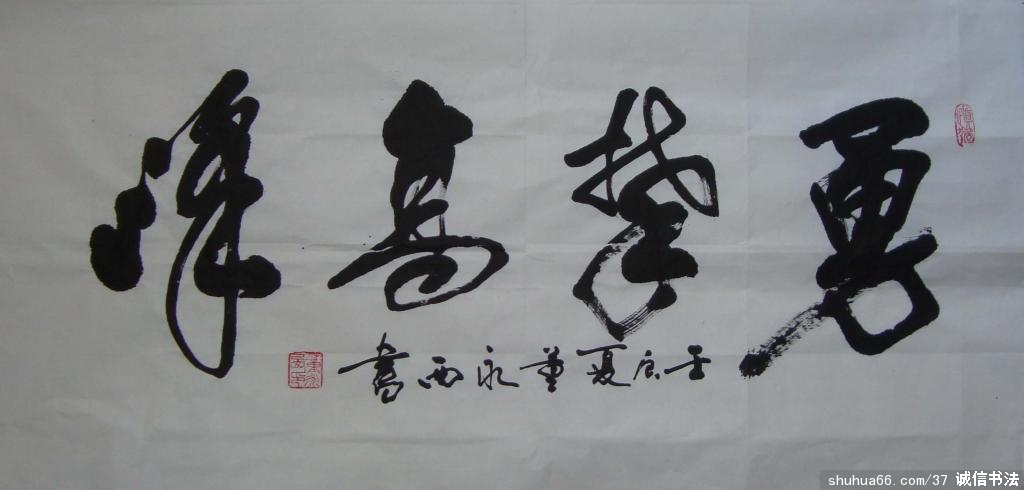 勇攀高峰
壬辰夏董永西書
shuhua66.com/37 诚信书法